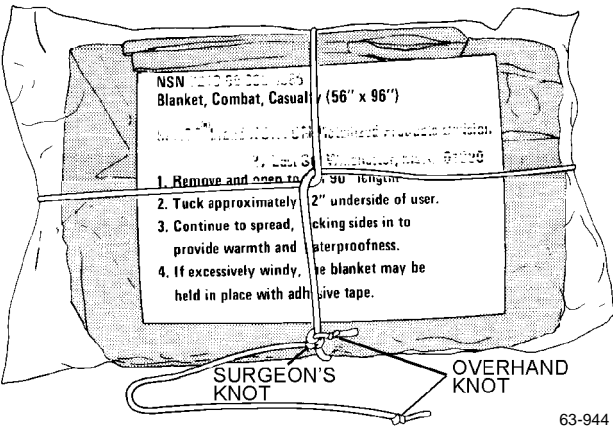 NSN
Blanket, Combat, Casual y (56" x 96")
Products Division
1. Remove and open to 96" length
2. Tuck approximately 2" underside of user.
3. Continue to spread, cking sides in to
provide warmth and aterproofness.
4. If excessively windy, he blanket may be
held in place with adh sive tape.
SURGEON'S
KNOT
OVERHAND
KNOT
63-944